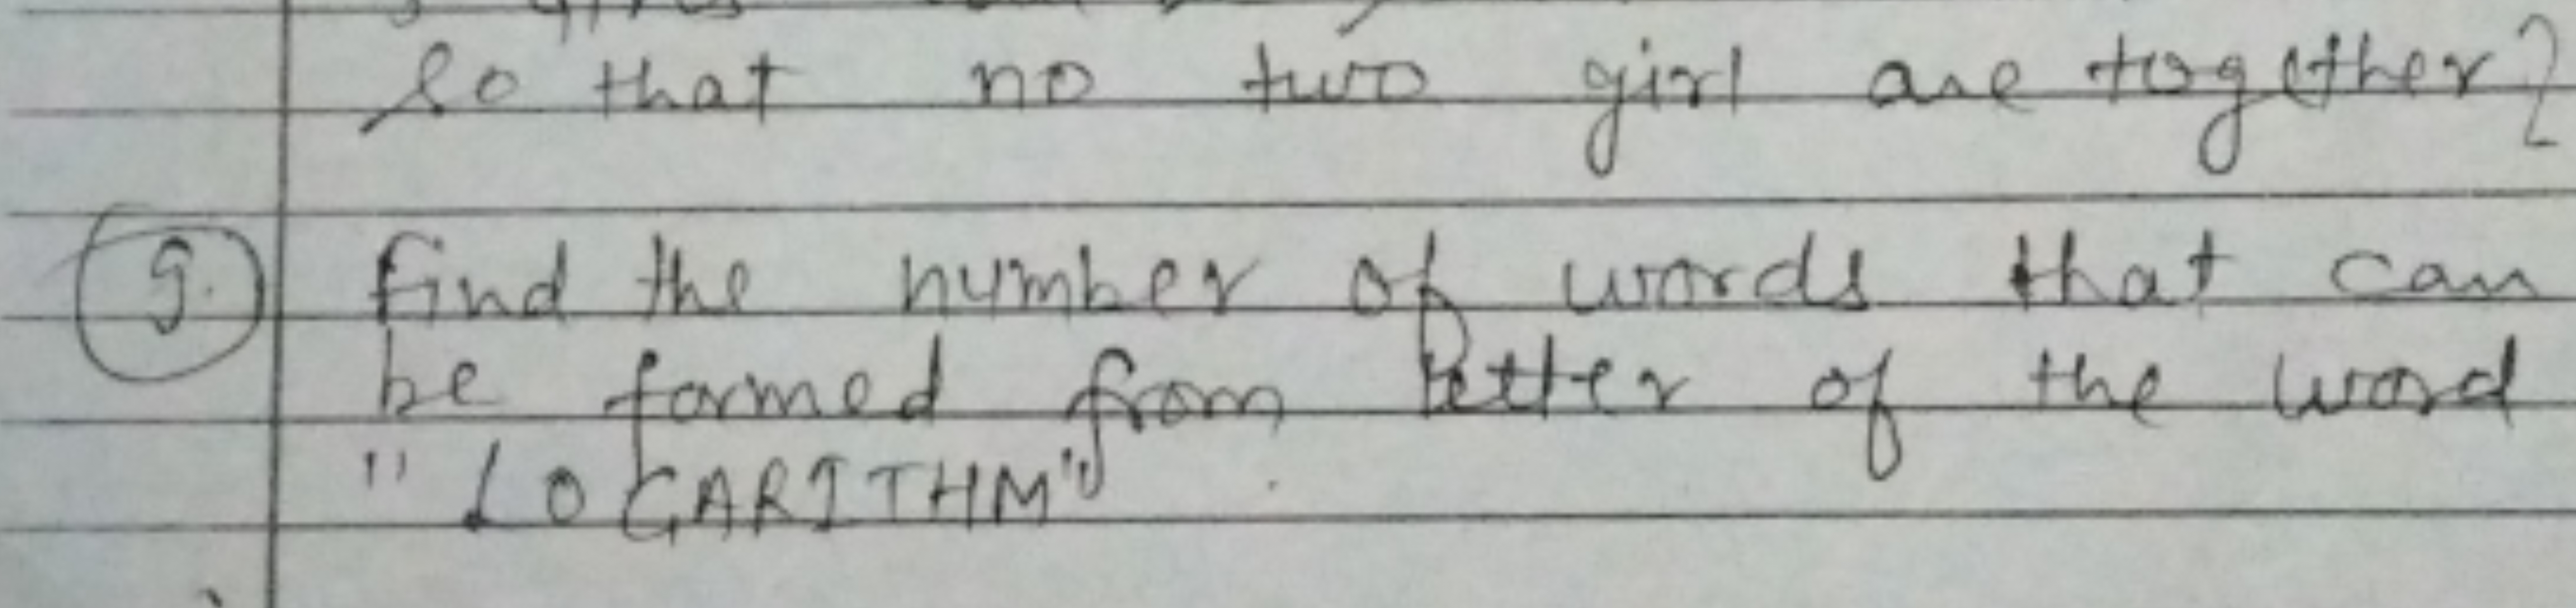 so that no two girl are together?
9. find the number of words that can
be formed from letter of the word
"LOGARITHM".